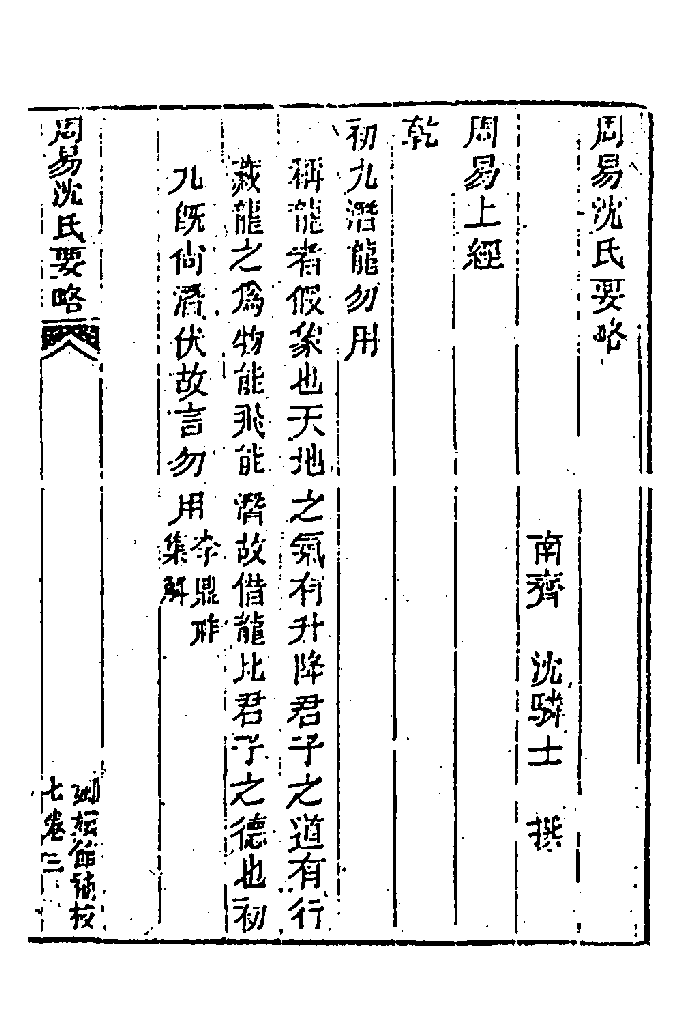 周易沈氏要略
南齊　沈驎士　撰
周易上經
乾
初九潛龍勿用
稱龍者假象也天地之氣有升降君子之道有行
藏龍之爲物能飛能潛故借龍比君子之德也初
九旣尙潛伏故言勿用李鼎祚
集解
周易沈氏要略
嫏嬛館補校
七卷三